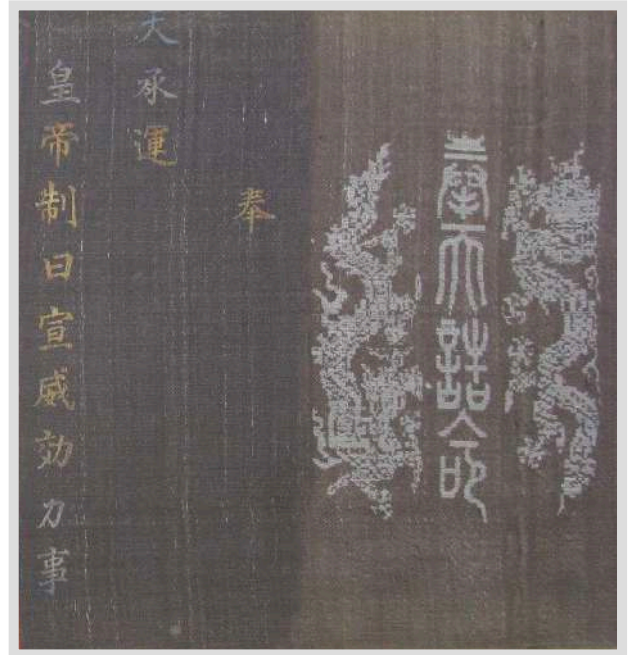 奉天誥命
奉
天承運
皇帝制曰宣威効力事